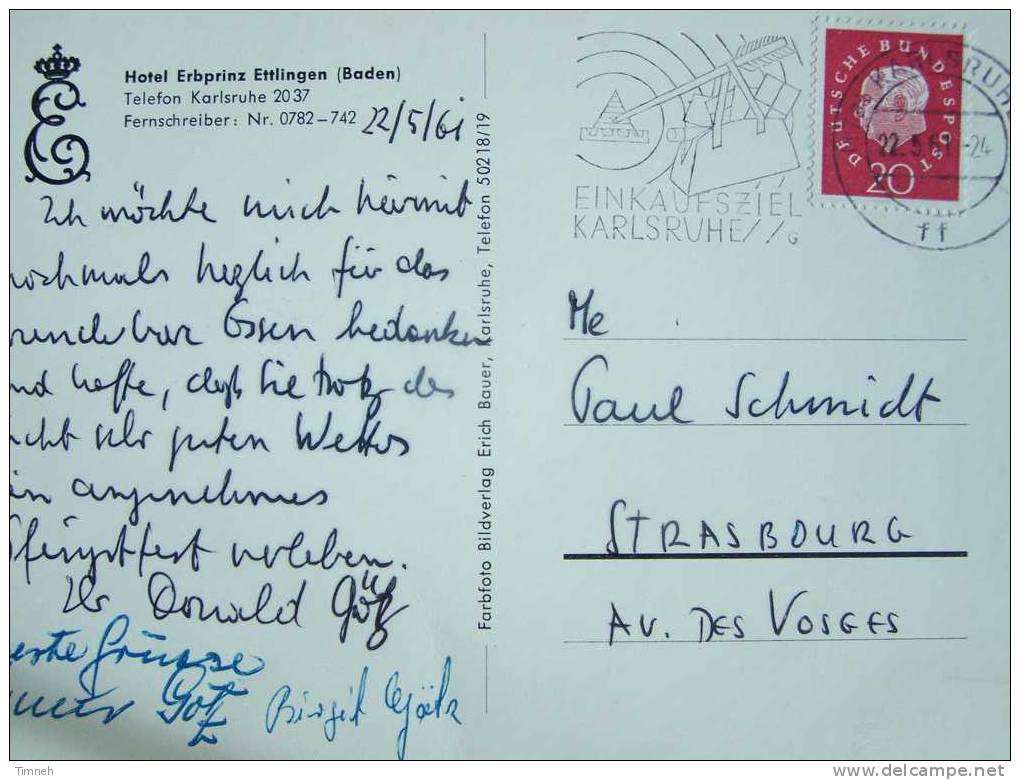 Hotel Erbprinz Ettlingen (Baden)
Telefon Karlsruhe 2037
Fernschreiber: Nr. 0782–742
22/5/61
Ich möchte mich hiermit
nochmals herzlich für das
wunderbar Essen bedanken
und hoffe, daß Sie trotz des
nicht sehr guten Wetters
ein angenehmes
Pfingstfest verleben.
Ihr Donald Götz
Grüsse
Götz Birgit Götz
Farbfoto Bildverlag Erich Bauer, Karlsruhe, Telefon 50218/19
EINKAUFSZIEL
KARLSRUHE
G
DEUTSCHE BUNDESPOST
20
KARLSRUHE
22.5.61-24
ff
Me
Paul Schmidt
STRASBOURG
AV. DES VOSGES
Timneh
delcampe.net